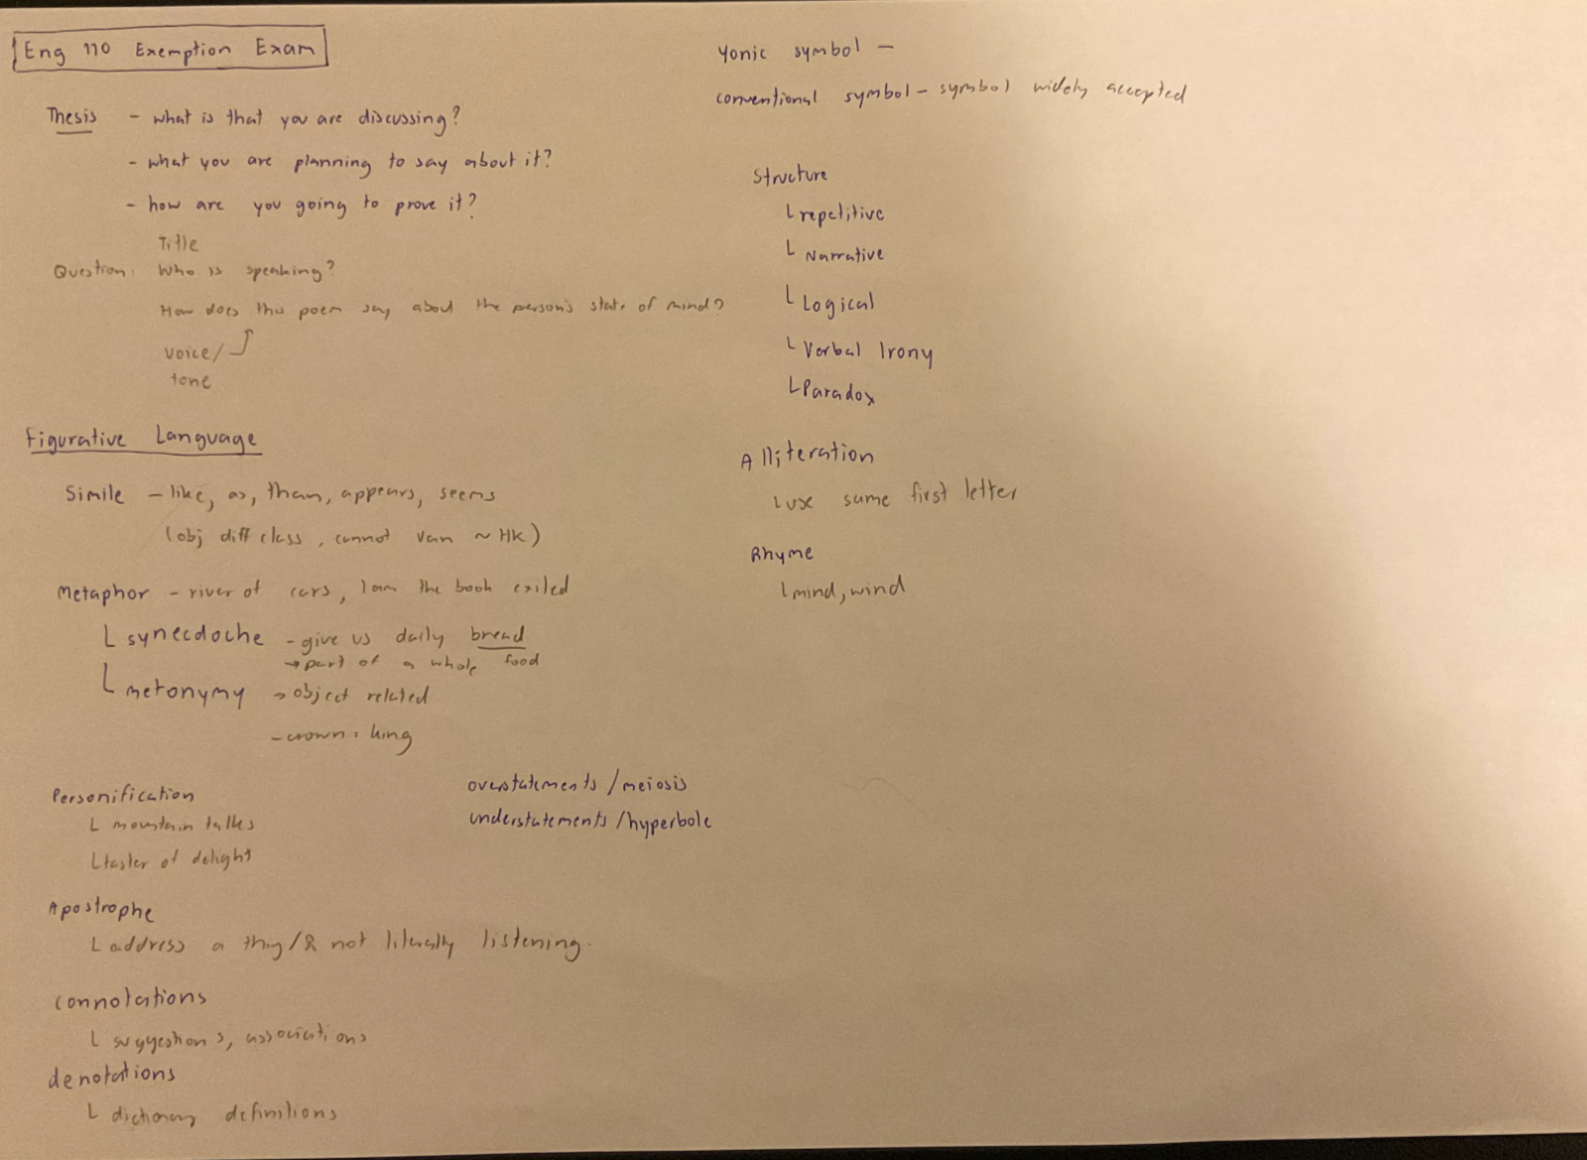 Eng 110 Exemption Exam
Thesis - what is that you are discussing?
- what you are planning to say about it?
- how are you going to prove it?
Title
Question: Who is speaking?
How does this poem say about the person's state of mind?
voice/
tone
Figurative Language
Simile - like, as, than, appears, seems
(obj diff class, cannot Van ~ HK)
Metaphor - river of cars, I am the book exiled
L synecdoche - give us daily bread
→ part of a whole food
L metonymy → object related
- crown : king
Personification
L mountain talks
L taster of delight
Apostrophe
L address a thing/ not literally listening.
connotations
L suggestions, associations
denotations
L dictionary definitions
overstatements / meiosis
understatements / hyperbole
Yonic symbol -
conventional symbol - symbol widely accepted
Structure
L repetitive
L Narrative
L Logical
L Verbal Irony
L Paradox
Alliteration
L use same first letter
Rhyme
L mind, wind